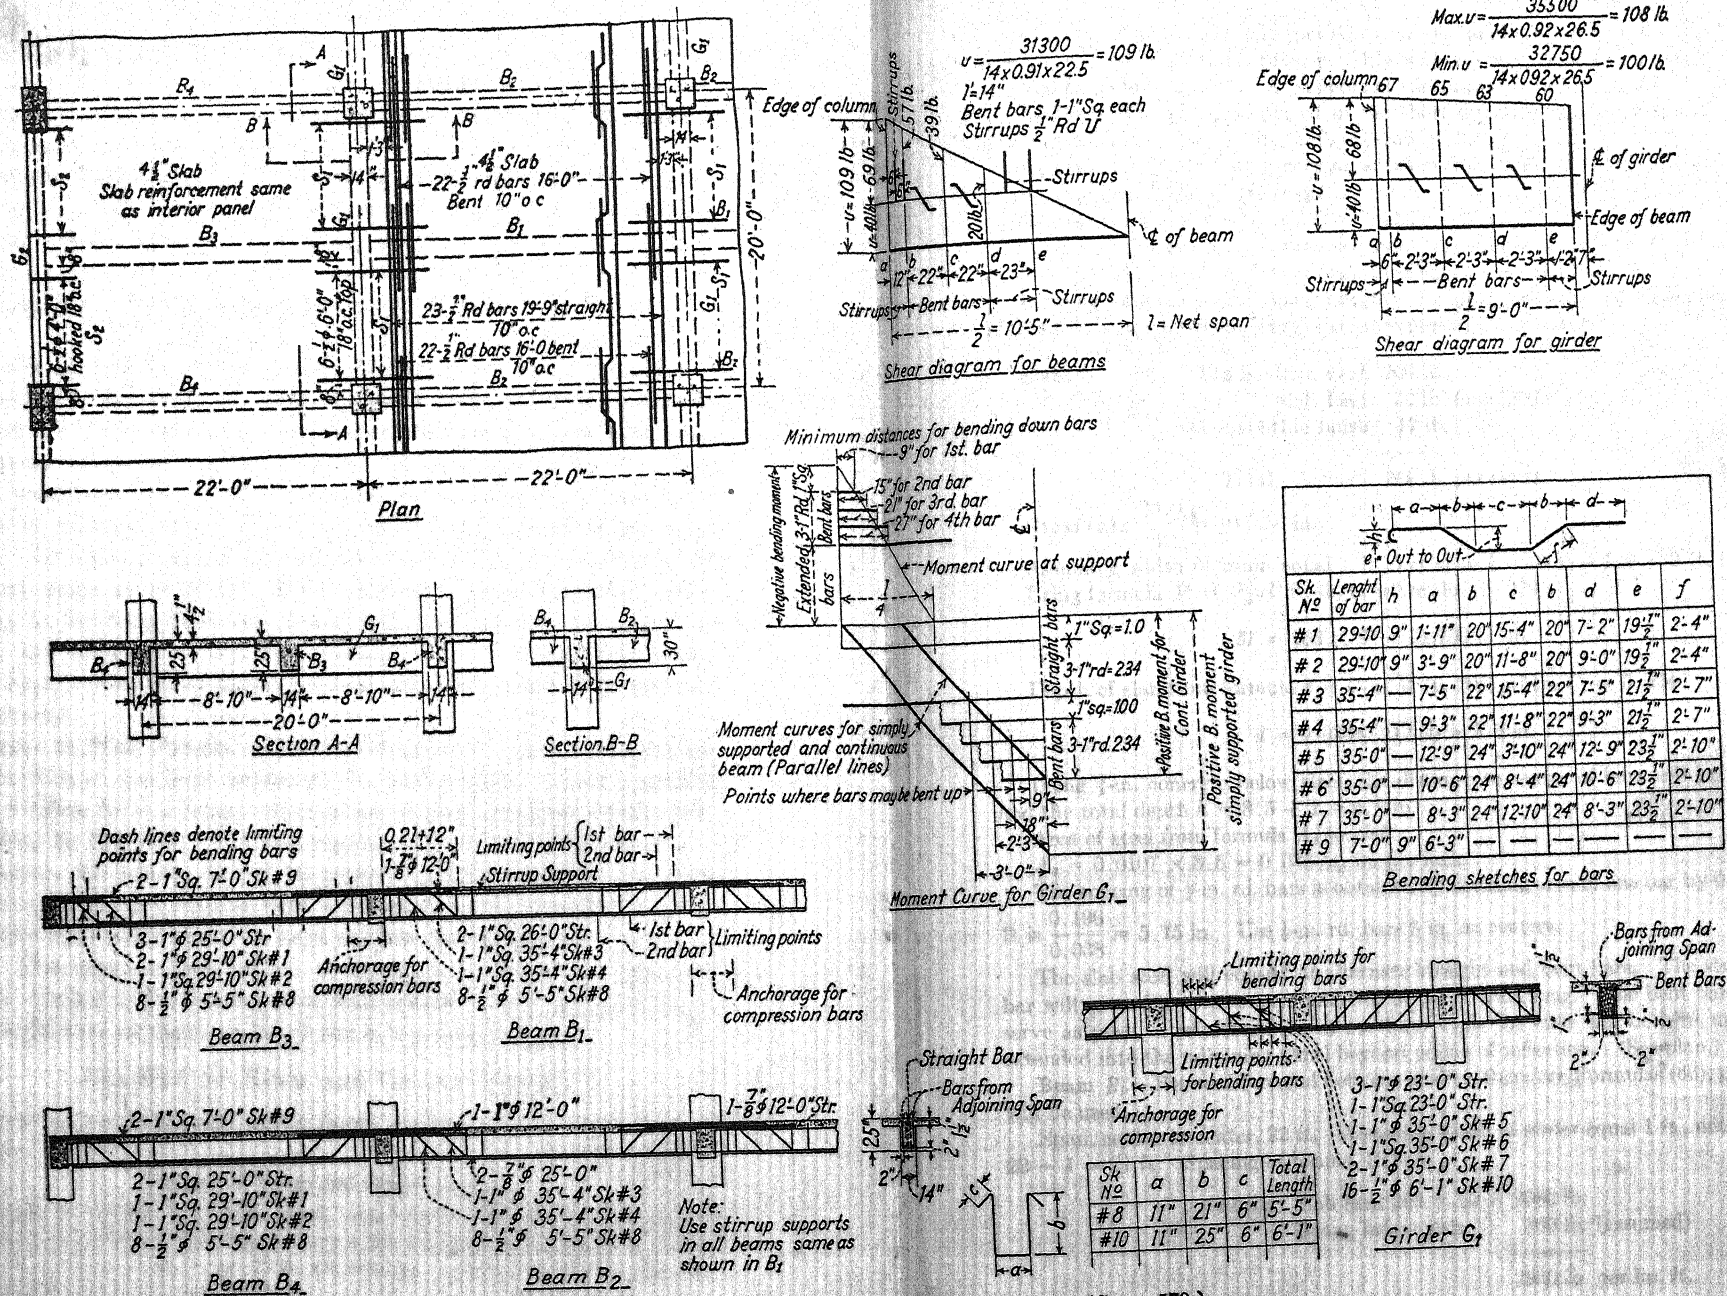 G₁
A
B₄
B₂
G₁
B₂
B
B
1'-3"
14"
4½" Slab
Slab reinforcement same
as interior panel
4½" Slab
22-½" rd bars 16'-0"
Bent 10" o c
S₂
S₁
S₁
G₂
B₃
B₁
B₁
20'-0"
G₁
S₁
23-½" Rd bars 19'-9" straight
10" o.c
22-½" Rd bars 16'-0 bent
10" o.c
6-½ϕ 6'-0"
18" o.c. Top
hooked 18" o.c.
S₂
S₁
B₄
B₂
B₂
A
22'-0"
22'-0"
Plan
Edge of column
Stirrups
57 lb.
39 lb.
v = 31300 / 14x0.91x22.5 = 109 lb.
l'=14"
Bent bars, 1-1" Sq. each
Stirrups ½" Rd U
Stirrups
v=109 lb
69 lb
v=40 lb
20 lb.
℄ of beam
a b c d e
12" 22" 22" 23"
Stirrups
Bent bars
Stirrups
l/2 = 10'-5"
l = Net span
Shear diagram for beams
Max. v = 35500 / 14x0.92x26.5 = 108 lb.
Min. v = 32750 / 14x092x26.5 = 100 lb.
Edge of column
67 65 63 60
v=108 lb.
68 lb
v=40 lb
℄ of girder
Edge of beam
a b c d e
6" 2'-3" 2'-3" 2'-3" 1'-2" 7"
Stirrups
Bent bars
Stirrups
l/2 = 9'-0"
Shear diagram for girder
Minimum distances for bending down bars
9" for 1st. bar
15" for 2nd bar
21" for 3rd. bar
27" for 4th bar
Negative bending moment
Extended 3-1" Rd, 1" Sq
bars
Bent bars
℄
Moment curve at support
l/4
1" Sq. = 1.0
3-1" rd = 2.34
Straight bars
1" sq. = 1.00
3-1" rd. 2.34
Bent bars
Positive B. moment for
Cont. Girder
Positive B. moment
simply supported girder
Moment curves for simply
supported and continuous
beam (Parallel lines)
Points where bars may be bent up
9"
18"
2'-3"
3'-0"
Moment Curve for Girder G₁
4½"
25"
25"
G₁
B₄
B₃
B₄
14" 8'-10" 14" 8'-10" 14"
20'-0"
Section A-A
B₄
B₂
30"
14"
G₁
Section B-B
a b c b d
h
e - Out to Out
f
Sk. Nº Lenght of bar h a b c b d e f
#1 29-10 9" 1'-11" 20" 15'-4" 20" 7'-2" 19½" 2'-4"
#2 29-10" 9" 3'-9" 20" 11'-8" 20" 9'-0" 19½" 2'-4"
#3 35'-4" — 7'-5" 22" 15'-4" 22" 7'-5" 21½" 2'-7"
#4 35'-4" — 9'-3" 22" 11'-8" 22" 9'-3" 21½" 2'-7"
#5 35'-0" — 12'-9" 24" 3'-10" 24" 12'-9" 23½" 2'-10"
#6 35'-0" — 10'-6" 24" 8'-4" 24" 10'-6" 23½" 2'-10"
#7 35'-0" — 8'-3" 24" 12'-10" 24" 8'-3" 23½" 2'-10"
#9 7'-0" 9" 6'-3" — — — — — —
Bending sketches for bars
Dash lines denote limiting
points for bending bars
2-1" Sq. 7'-0" Sk#9
0.21+12"
1-⅞"ϕ 12'-0"
Limiting points
1st bar
2nd bar
Stirrup Support
3-1"ϕ 25'-0" Str
2-1"ϕ 29'-10" Sk#1
1-1" Sq. 29'-10" Sk#2
8-½"ϕ 5'-5" Sk#8
Anchorage for
compression bars
2-1" Sq. 26'-0" Str.
1-1" Sq. 35'-4" Sk#3
1-1" Sq. 35'-4" Sk#4
8-½"ϕ 5'-5" Sk#8
1st bar
2nd bar
Limiting points
Anchorage for
compression bars
Beam B₃
Beam B₁
2-1" Sq. 7'-0" Sk#9
1-1"ϕ 12'-0"
1-⅞"ϕ 12'-0" Str.
2-1" Sq. 25'-0" Str.
1-1" Sq. 29'-10" Sk#1
1-1" Sq. 29'-10" Sk#2
8-½"ϕ 5'-5" Sk#8
2-⅞"ϕ 25'-0"
1-1"ϕ 35'-4" Sk#3
1-1"ϕ 35'-4" Sk#4
8-½"ϕ 5'-5" Sk#8
Note:
Use stirrup supports
in all beams same as
shown in B₁
Beam B₄
Beam B₂
Straight Bar
Bars from
Adjoining Span
25"
1½"
2"
2"
14"
c
b
a
Sk Nº a b c Total Length
#8 11" 21" 6" 5'-5"
#10 11" 25" 6" 6'-1"
Limiting points for
bending bars
Limiting points
for bending bars
Anchorage for
compression
3-1"ϕ 23'-0" Str.
1-1" Sq. 23'-0" Str.
1-1"ϕ 35'-0" Sk#5
1-1" Sq. 35'-0" Sk#6
2-1"ϕ 35'-0" Sk#7
16-½"ϕ 6'-1" Sk#10
Girder G₁
Bars from Ad-
joining Span
Bent Bars
2"
2"